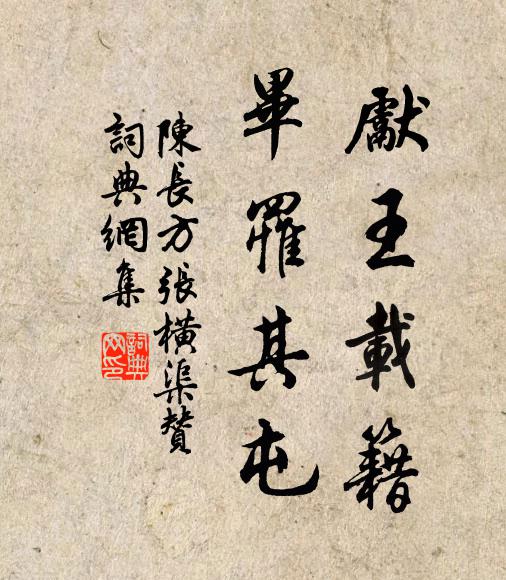 獻王載籍
畢羅其屯
陳長方張橫渠贊
詞典網集
詞典網印